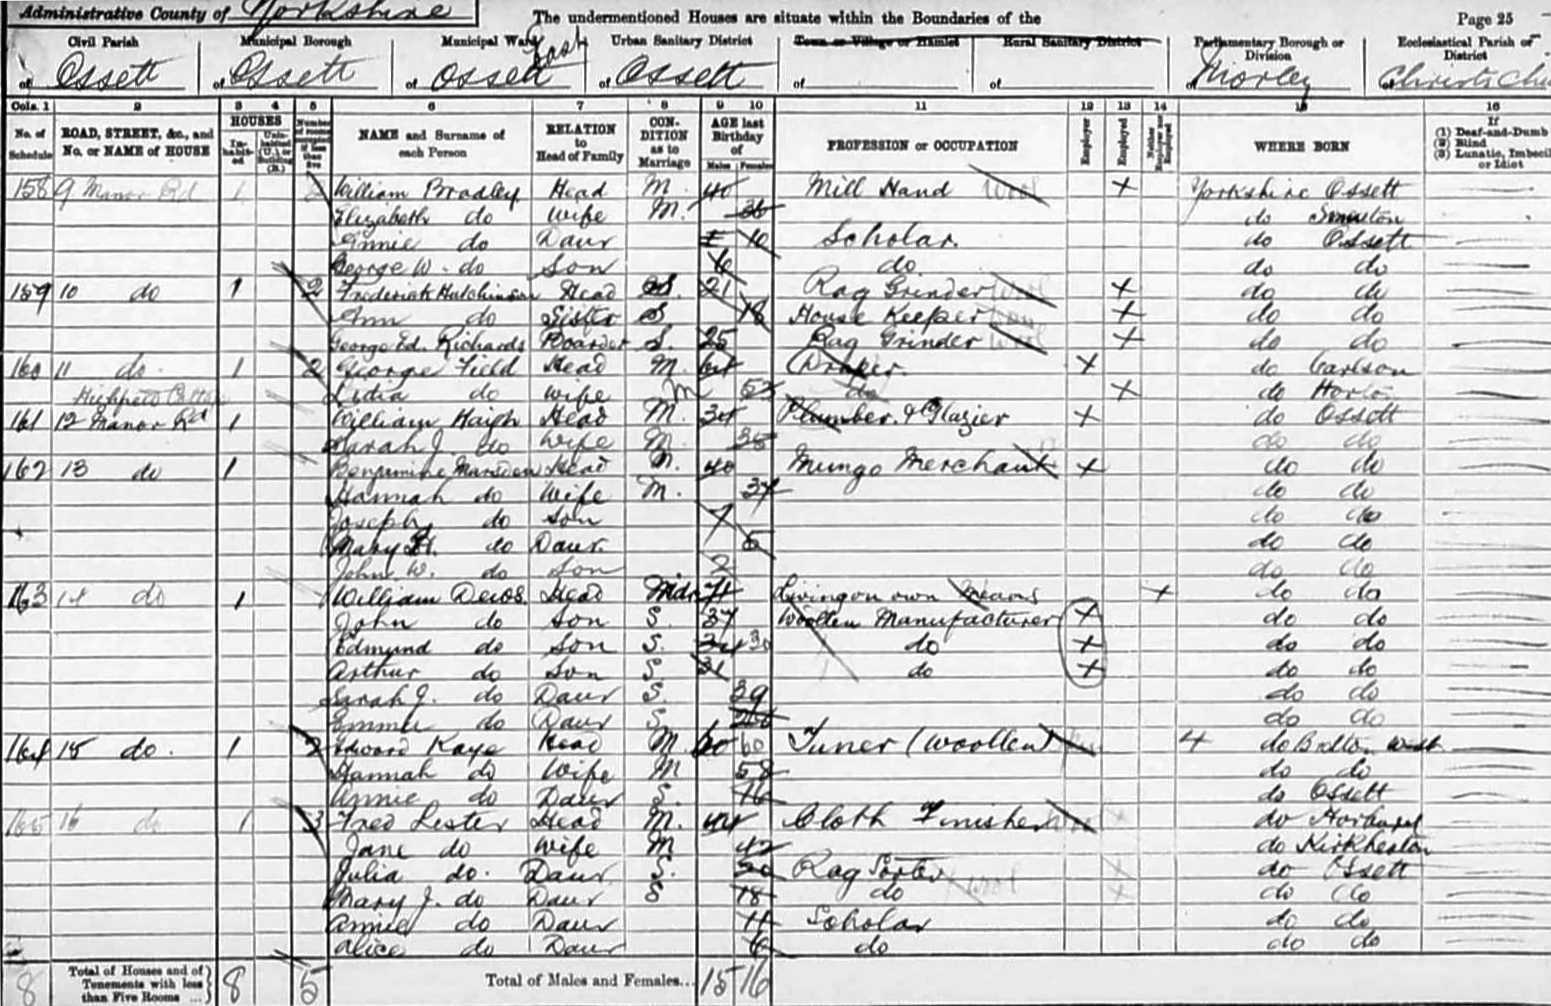 Administrative County of Yorkshire The undermentioned Houses are situate within the Boundaries of the Page 25
Civil Parish Municipal Borough Municipal Ward Urban Sanitary District Town or Village or Hamlet Rural Sanitary District Parliamentary Borough or Division Ecclesiastical Parish or District
of Ossett of Ossett of Ossett East of Ossett of of of Morley of Christ's Chu
Cols. 1 2 3 4 5 6 7 8 9 10 11 12 13 14 15 16
No. of Schedule ROAD, STREET, &c., and No. or NAME of HOUSE HOUSES Inhabited Uninhabited (U.), or Building (B.) Number of rooms occupied if less than five NAME and Surname of each Person RELATION to Head of Family CONDITION as to Marriage AGE last Birthday of Males Females PROFESSION or OCCUPATION Employer Employed Neither Employer nor Employed WHERE BORN If (1) Deaf-and-Dumb (2) Blind (3) Lunatic, Imbecile or Idiot
158 9 Manor Rd 1 2 William Bradley Head M. 40 Mill Hand Wool X Yorkshire Ossett
Elizabeth do Wife M. 36 do
Annie do Daur 10 Scholar. do Ossett
George W. do Son 6 do do do
159 10 do 1 2 Frederick Hutchinson Head S. 21 Rag Grinder Wool X do do
Ann do Sister S 18 House Keeper X do do
George Ed. Richards Boarder S. 25 Rag Grinder Wool X do do
160 11 do. 1 2 George Field Head M. 64 Draper. X do
Lidia do Wife M 52 do X do
161 12 Manor Rd 1 William Haigh Head M. 34 Plumber & Glazier X do Ossett
Sarah J. do Wife M. 35 do do
162 13 do 1 Benjamine Marsden Head M. 40 Mungo Merchant X do do
Hannah do Wife M. 37 do do
Joseph do Son 7 do do
Mary H. do Daur. 5 do do
John W. do Son 2 do do
163 14 do 1 William Dews. Head Widr 71 Living on own Means X do do
John do Son S. 37 Woollen Manufacturer X do do
Edmund do Son S. 34 do X do do
Arthur do Son S 31 do X do do
Sarah J. do Daur S. 39 do do
Emma do Daur S do do
164 15 do. 1 2 Edward Kaye Head M. 60 60 Tuner (Woollen) 4 do
Hannah do Wife M 58 do do
Annie do Daur S. 16 do Ossett
165 16 do 1 3 Fred Lester Head M. 44 Cloth Finisher X do Horbury
Jane do Wife M 42 do Kirkheaton
Julia do. Daur S. 20 Rag Sorter wool X do Ossett
Mary J. do Daur S 18 do X do do
Annie do Daur 11 Scholar do do
Alice do Daur 6 do do do
8 Total of Houses and of Tenements with less than Five Rooms ... 8 5 Total of Males and Females... 15 16